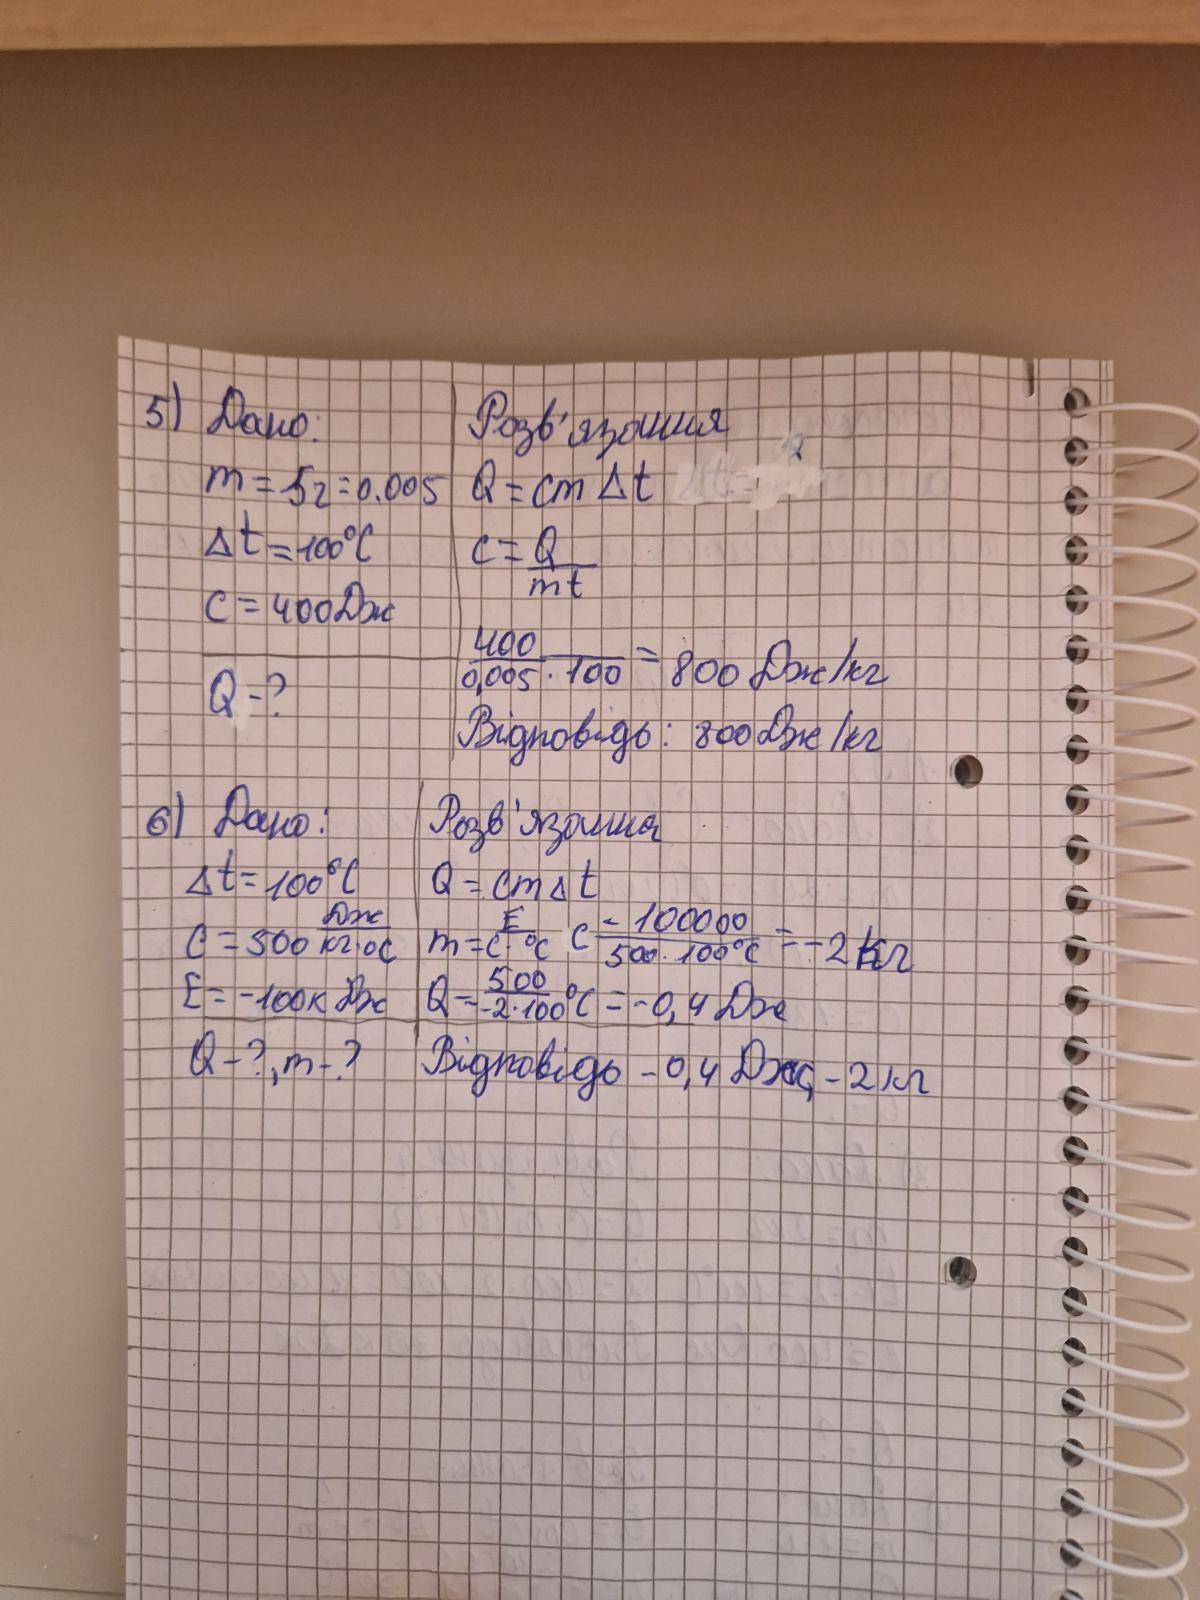 5) Дано:
m = 5г = 0.005
Δt = 100°C
C = 400 Дж
Q - ?
Розв'язання
Q = cm Δt
c = Q / mt
400 / 0,005 · 100 = 800 Дж/кг
Відповідь: 800 Дж/кг
6) Дано:
Δt = 100°C
C = 500 Дж / кг·°C
E = -100к Дж
Q - ?, m - ?
Розв'язання
Q = cm Δt
m = E / c · °C C - 100000 / 500 · 100°C = -2 кг
Q = 500 / -2·100 °C = -0,4 Дж
Відповідь -0,4 Дж, -2 кг